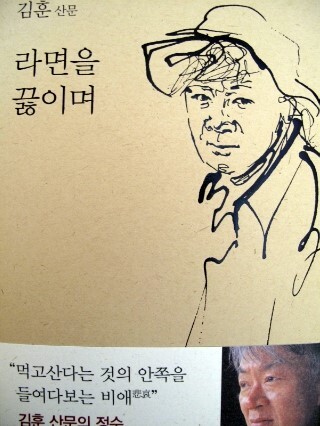 김훈 산문
라면을
끓이며
“먹고산다는 것의 안쪽을
들여다보는 비애悲哀”
김훈 산문의 정수